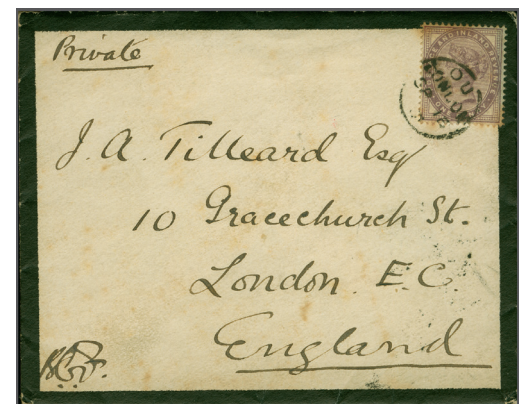 Private
J. A. Tilleard Esq
10 Gracechurch St.
London. E.C.
England